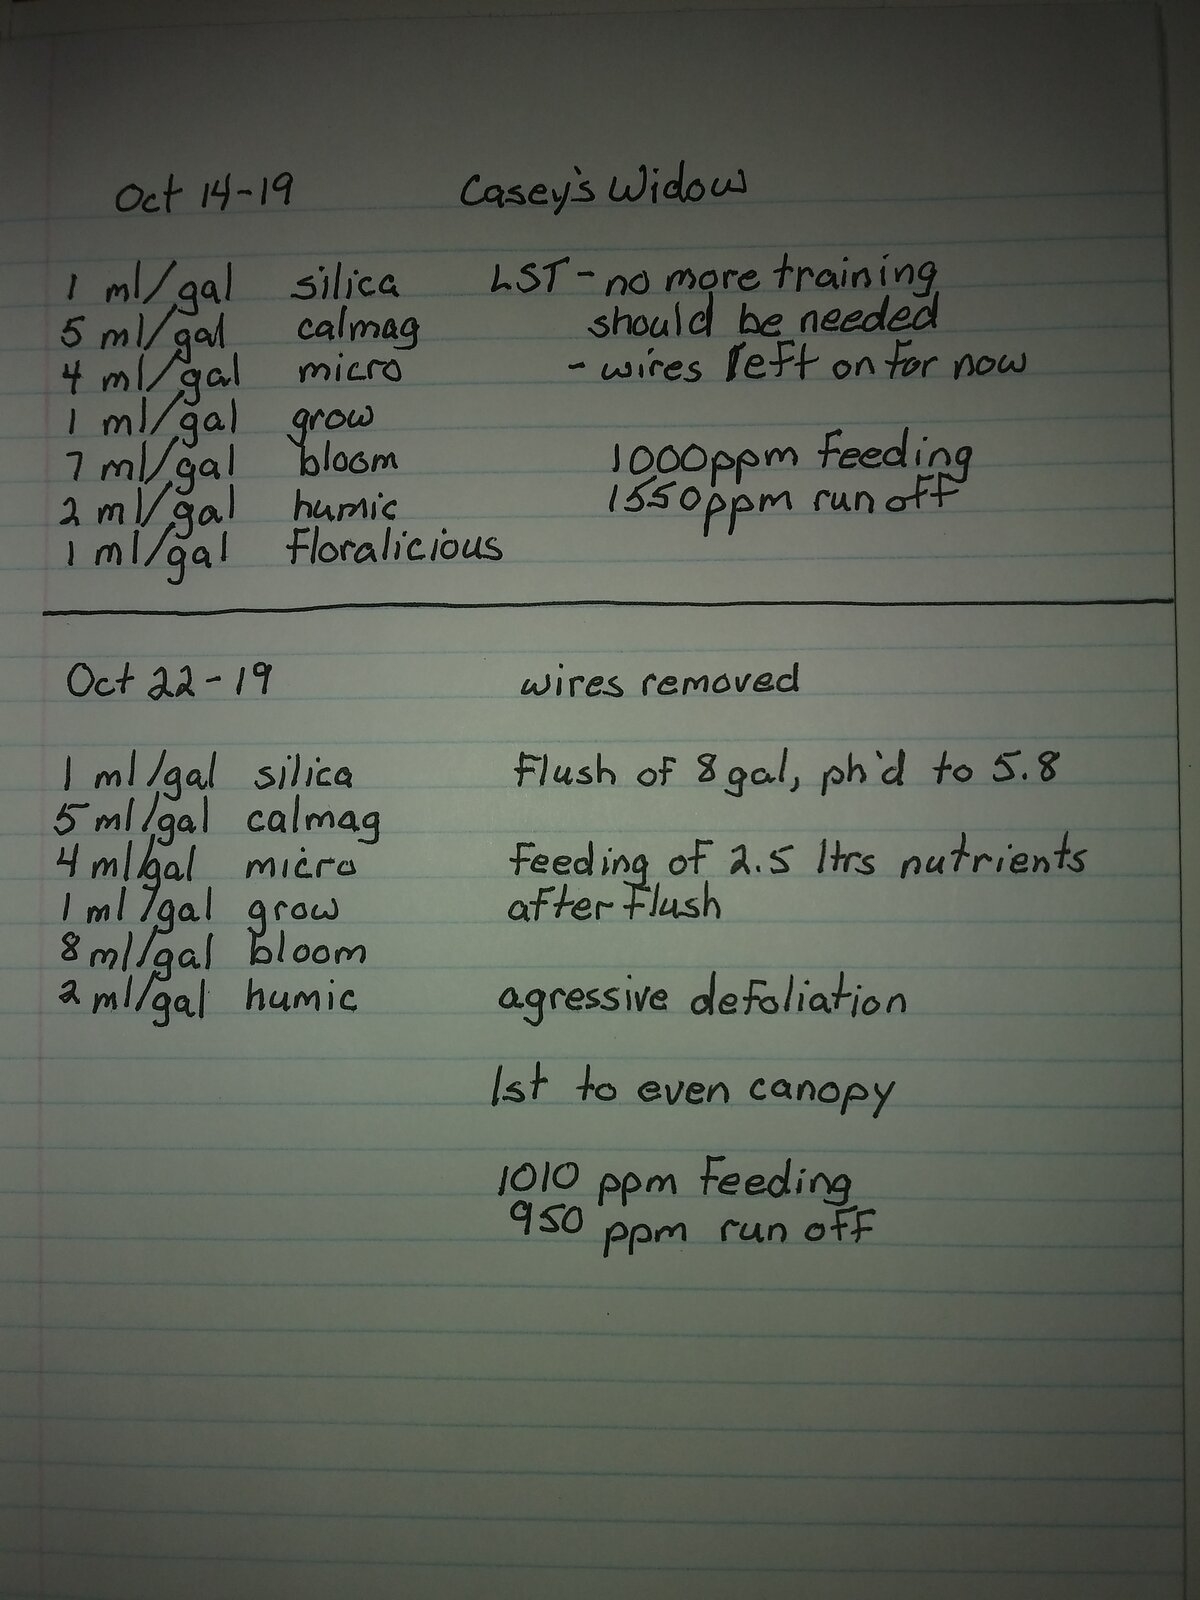 Oct 14-19 Casey's Widow
1 ml/gal silica LST - no more training
5 ml/gal calmag should be needed
4 ml/gal micro - wires left on for now
1 ml/gal grow
7 ml/gal bloom 1000ppm feeding
2 ml/gal humic 1550ppm run off
1 ml/gal floralicious
Oct 22-19 wires removed
1 ml/gal silica Flush of 8 gal, ph'd to 5.8
5 ml/gal calmag
4 ml/gal micro feeding of 2.5 ltrs nutrients
1 ml/gal grow after flush
8 ml/gal bloom
2 ml/gal humic agressive defoliation
lst to even canopy
1010 ppm feeding
950 ppm run off